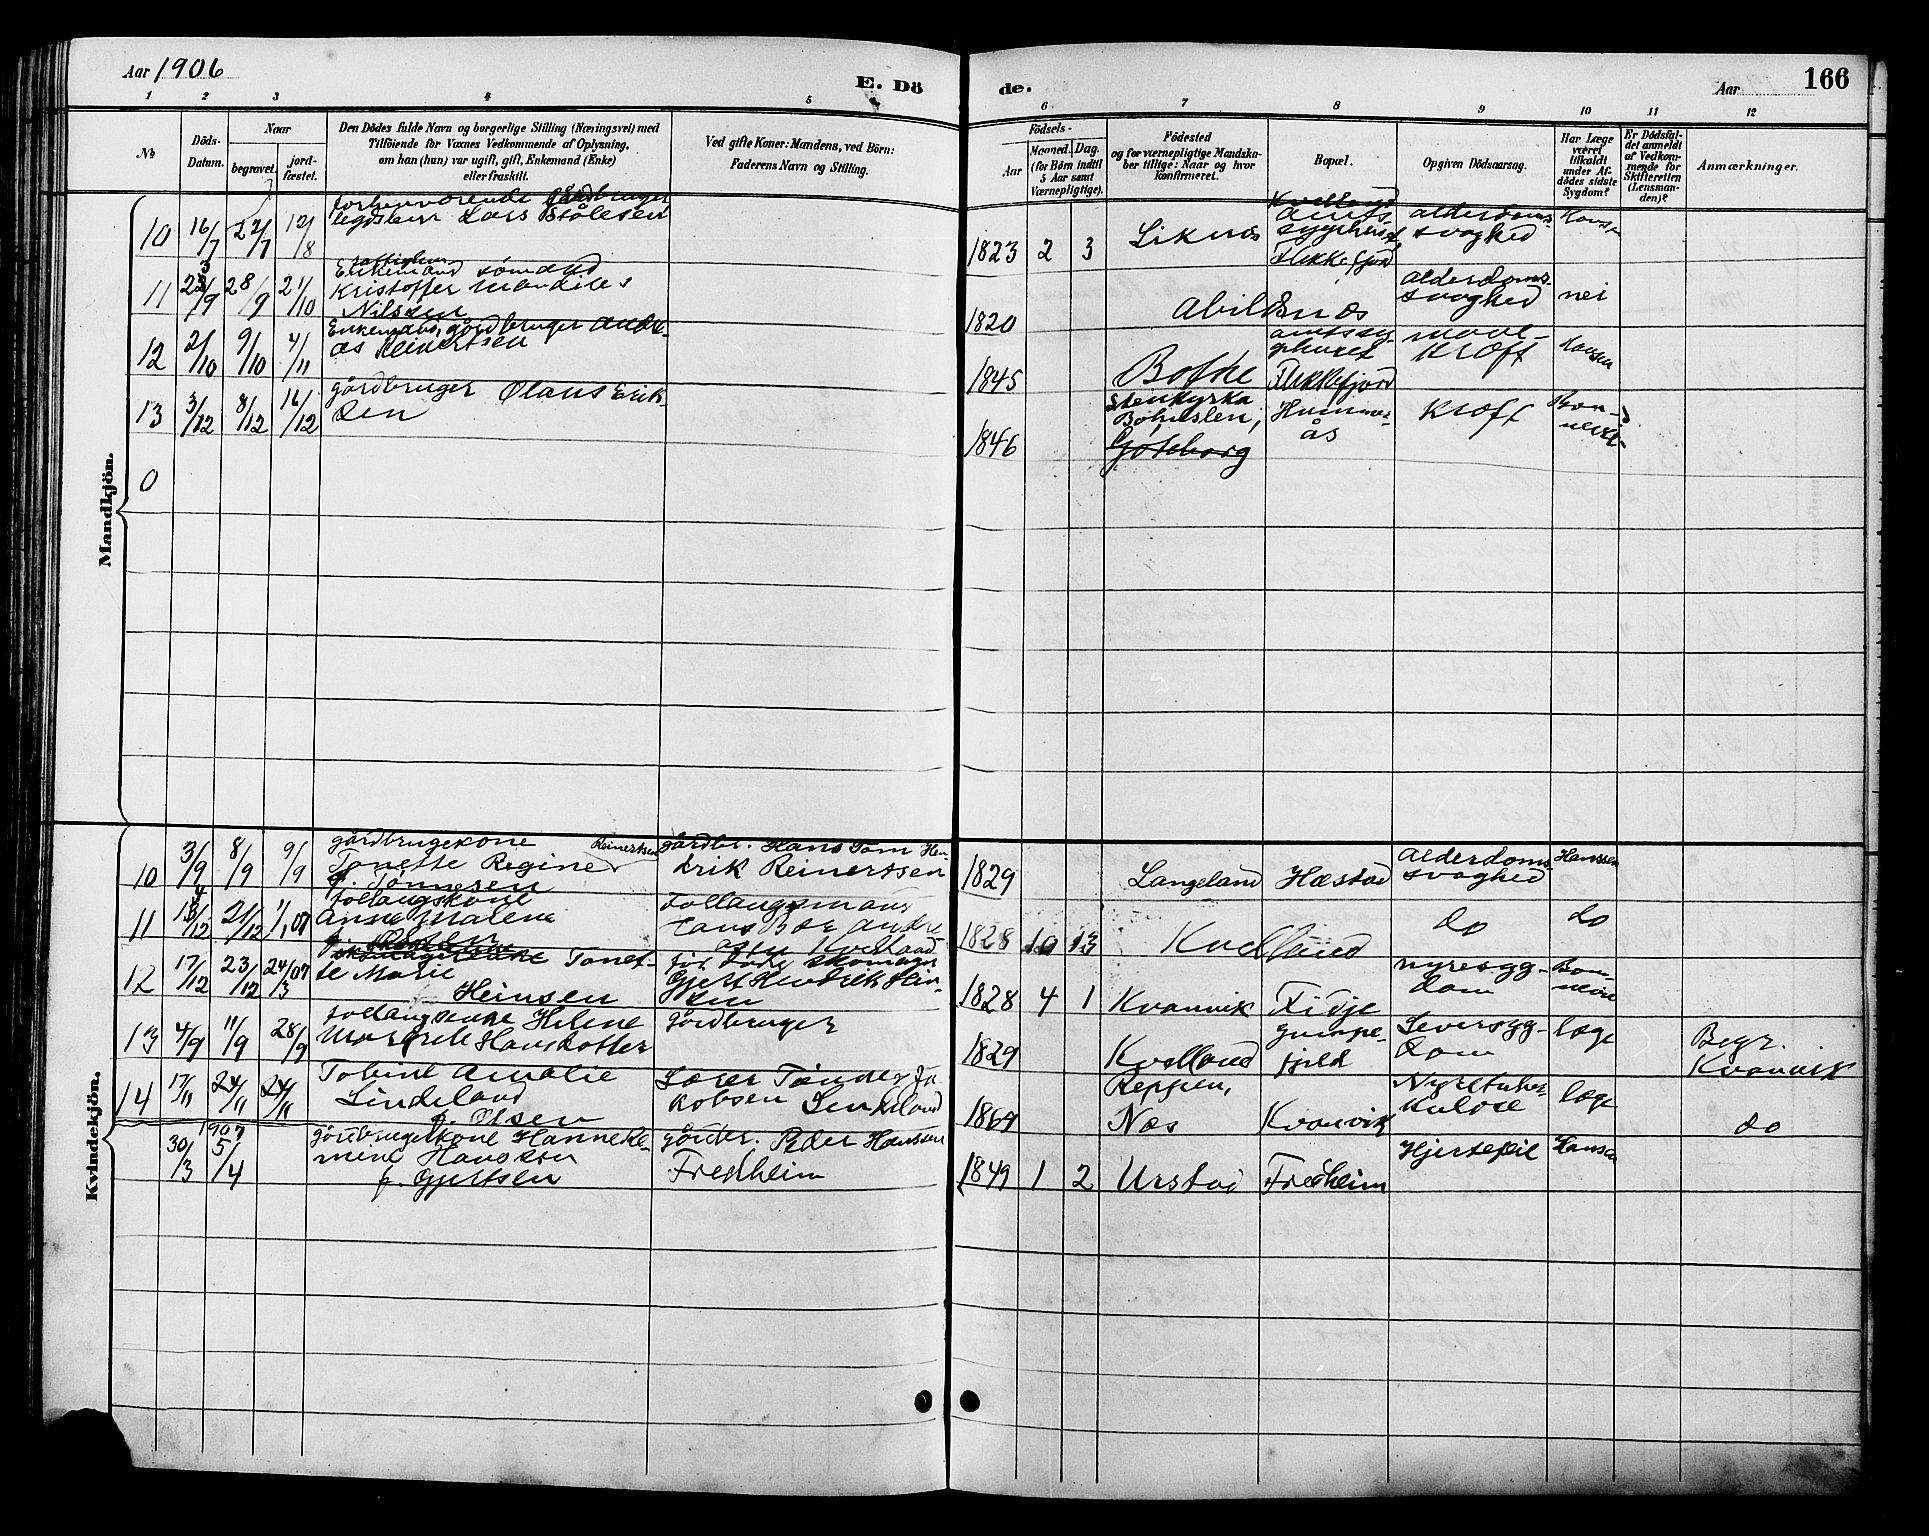 Aar 1906
E. Dö
de.
Aar
166
1 2 3 4 5 6 7 8 9 10 11 12
No
Döds-
Datum.
Naar
begravet.
jord-
fæstet.
Den Dödes fulde Navn og borgerlige Stilling (Næringsvei) med
Tilföiende for Voxnes Vedkommende af Oplysning,
om han (hun) var ugift, gift, Enkemand (Enke)
eller fraskilt.
Ved gifte Koner: Mandens, ved Börn:
Faderens Navn og Stilling.
Födsels-
Aar
Maaned. Dag.
(for Börn indtil
5 Aar samt
Værnepligtige).
Födested
og for værnepligtige Mandska-
ber tillige: Naar og hvor
konfirmeret.
Bopæl.
Opgiven Dödsaarsag.
Har Læge
været
tilkaldt
under Af-
dödes sidste
Sygdom?
Er Dödsfal-
det anmeldt
af Vedkom-
mende for
Skifteretten
(Lensman-
den)?
Anmærkninger.
Mandkjön.
10 16/7 22/7 12/8
forhenværende gårdbruger
legdslem Lars Stålesen
1823 2 3 Liknes
Kvelland
amts
sygehuset,
Flekkefjord
alderdoms-
svaghed
11 23/9 28/9 21/10
Enkemand sømand
Kristoffer
Nilssen
1820 Abilsnæs
alderdoms-
svaghed
nei
12 2/10 9/10 4/11
Enkemand, gårdbruger Andre-
as Reinertsen
1845
amtssy-
gehuset
Flekkefjord
mave-
kræft
Hansen
13 3/12 8/12 16/12
gårdbruger Olaus Erik-
sen
1846
Stenkyrka
Bohuslen,
Göteborg
Hummer-
ås
Kræft
0
Kvindekjön.
10 3/9 8/9 9/9
gårdbrugekone
Tonette Regine Reinertsen
f. Tønnesen
gårdbr. Hans Tom Hen-
drik Reinertsen
1829 Langeland Hæstad
alderdoms-
svaghed
Hanssen
11 13/12 21/12 1/1 07
follaugskone
Anne Malene
follaugsmand
Hans Boe Andre-
asen Kvelland
1828 10 13 Kvelland
do
do
12 17/12 23/12 24/3 07
Tonet-
te Marie
Heinsen
skomager
Gjert Hendrik Hein-
sen
1828 4 1 Kvanvik Fidje
nyresyg-
dom
13 4/9 11/9 28/9
follaugsenke Helene
Margrete Hansdatter
gårdbruger
1829 Kvelland
gumpe-
fjeld
Leversyg-
dom
læge
Begr.
Kvanvik
14 17/11 24/11 24/11
Tobine Amalie
Lindeland
f. Olsen
Lærer Tønnes Ja-
kobsen Lindeland
1869
Reppen,
Næs
Kvanvik
Nyretuber-
kulose
læge
do
1907
30/3 5/4
gårdbrugerkone Hanneke-
mine Hanssen
f. Gjertsen
gårdbr. Peder Hanssen
Fredheim
1849 1 2 Urstad Fredheim
Hjertefeil
Hansen